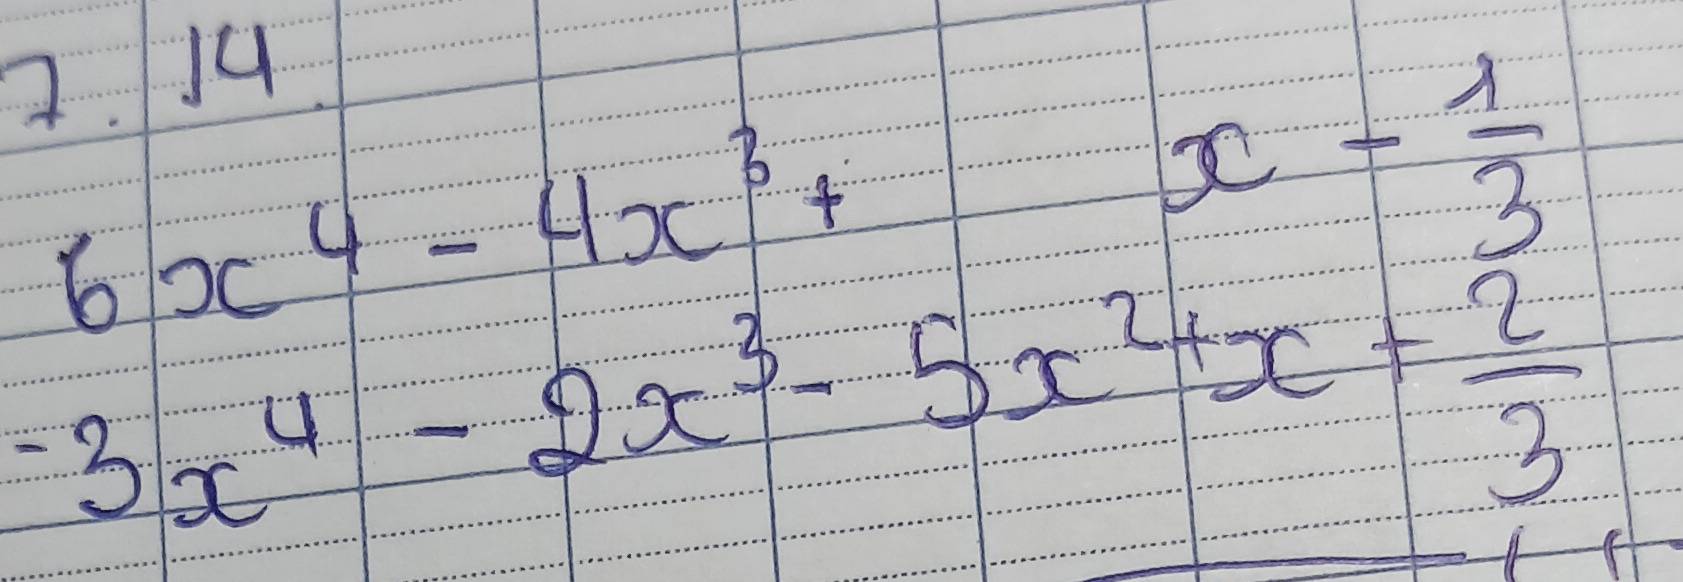 7.14.
6x⁴ - 4x³ + x - 1/3
-3x⁴ - 2x³ - 5x² + x + 2/3